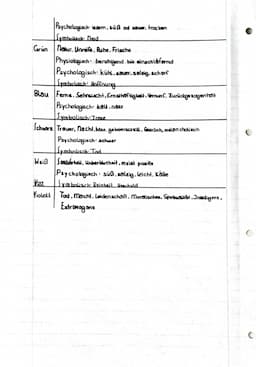 Psychologisch: warm, süß ad sauer, trocken
Symbolisch: Neid
Grün Natur, Unreife, Ruhe, Frische
Physiologisch: beruhigend bis einschläfernd
Psychologisch: kühl, sauer, salzig, scharf
Symbolisch: Hoffnung
Blau Ferne, Sehnsucht, Ernsthaftigkeit, Vernunft, Zurückgezogenheit
Psychologisch: kalt,
Symbolisch: Treue
Schwarz Trauer, Macht, geheimnisvoll,
Psychologisch: schwer
Symbolisch: Tod
Weiß Sauberkeit, Unberührtheit,
Psychologisch: süß, salzig, leicht, Kälte
Symbolisch: Reinheit, Unschuld
Violett Tod, Macht, Leidenschaft, Spiritualität,
Extravaganz